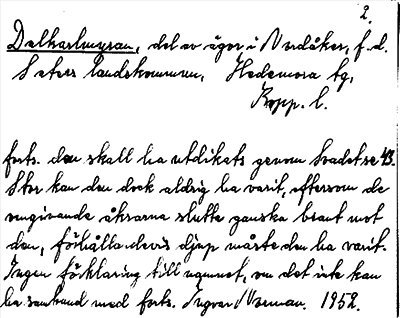 2.
Dalkarlmyran, del av ägor i Nordåker, f.d.
Säters landskommun, Hedemora tg,
Kopp. l.
forts. den skall ha utdikats genom Svadet se 43.
Stor kan den dock aldrig ha varit, eftersom de
omgivande åkrarna slutte ganska brant mot
den, förhållandevis djup måste den ha varit.
Ingen förklaring till namnet, om det icke kan
ha samband med forts. Ingvar Norman. 1958.